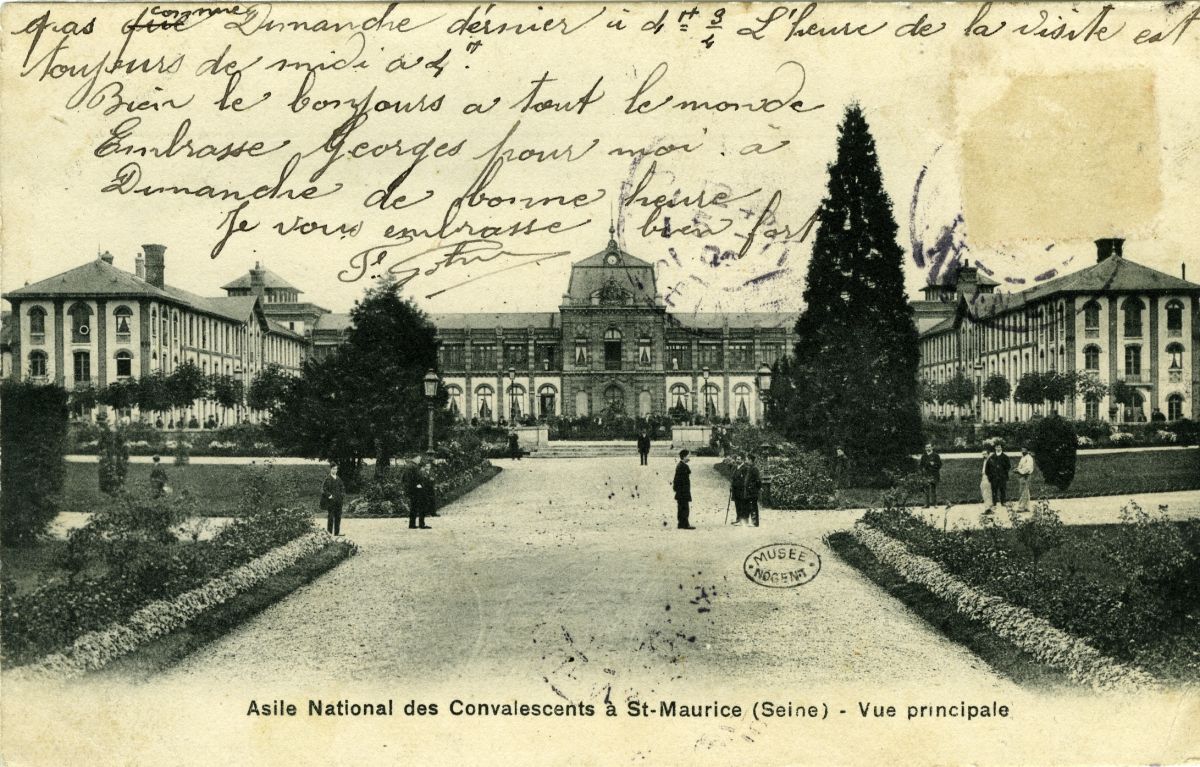 pas comme Dimanche dérnier à 4 rt 3/4 L'heure de la visite est
toujours de midi à 4 rt
Bien le bonjours a tout le monde
Embrasse Georges pour moi. à
Dimanche de bonne heure
Je vous embrasse bien fort
MUSÉE
NOGENT
Asile National des Convalescents à St-Maurice (Seine) - Vue principale